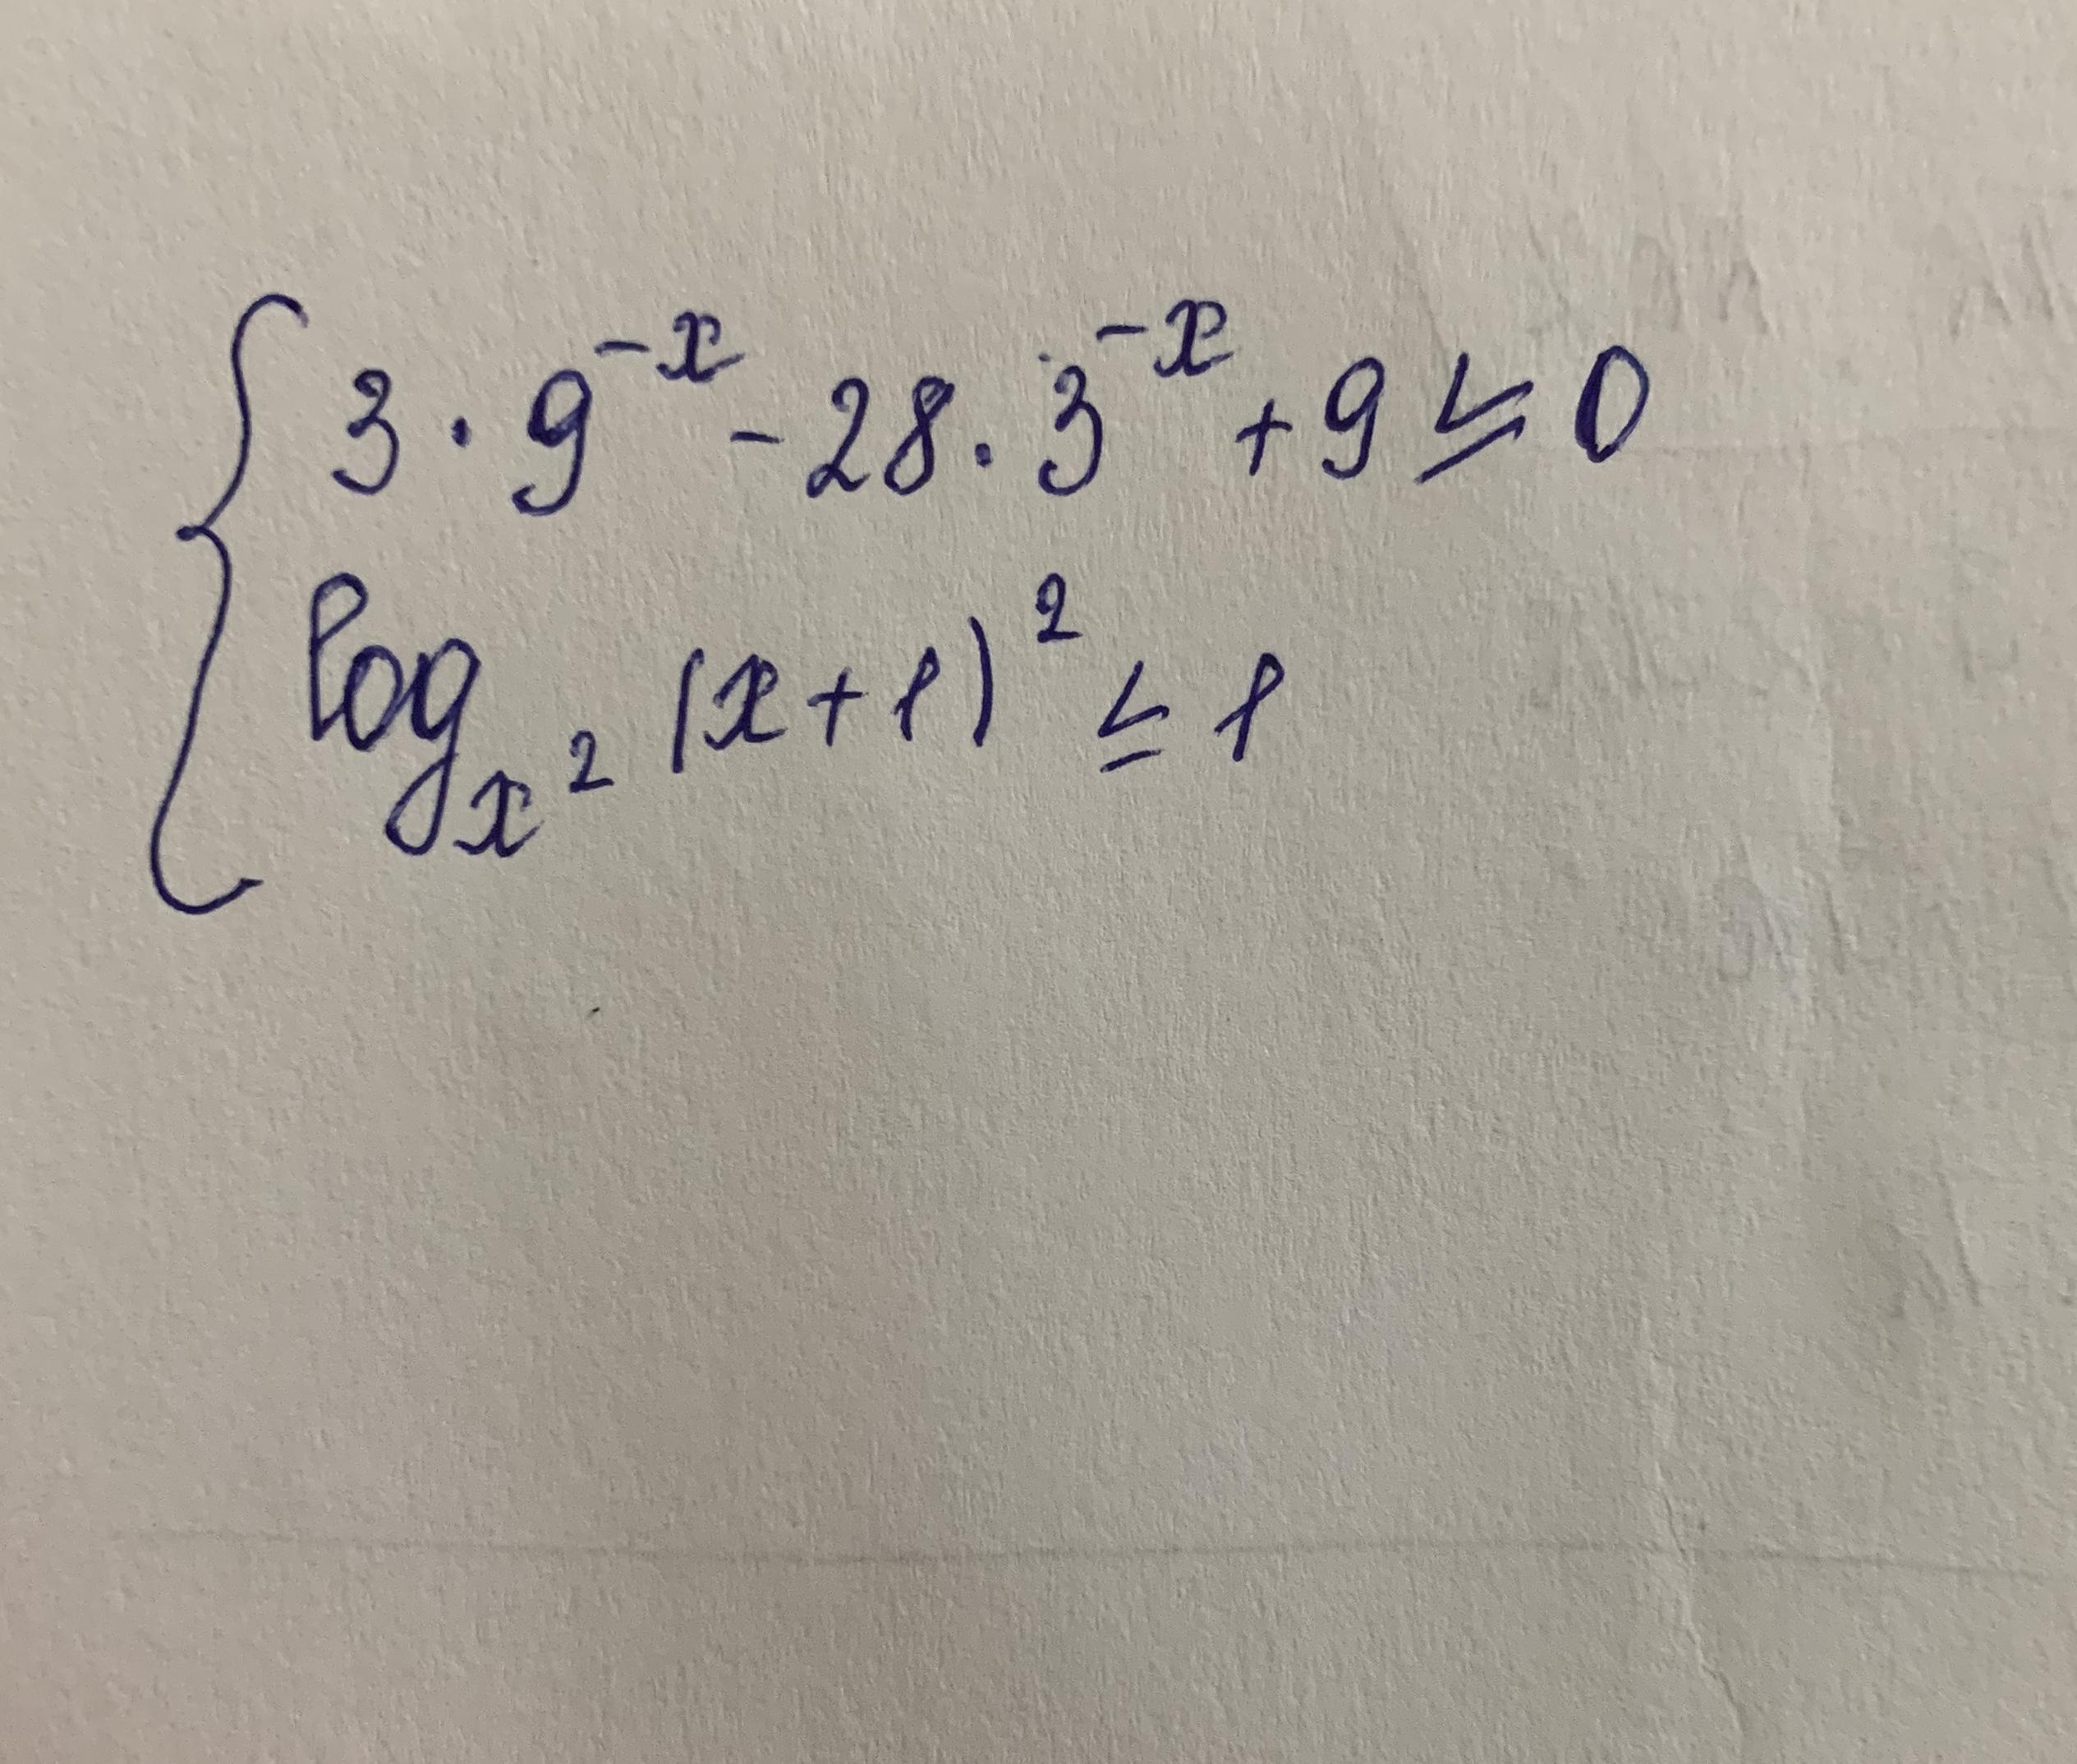 { 3 · 9^{-x} - 28 · 3^{-x} + 9 ≤ 0
log_{x^2} (x+1)^2 ≤ 1